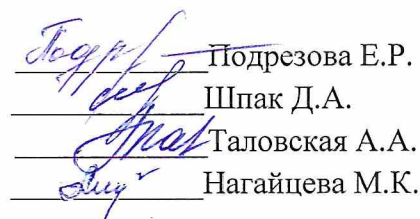 Подрезова Е.Р.
Шпак Д.А.
Таловская А.А.
Нагайцева М.К.